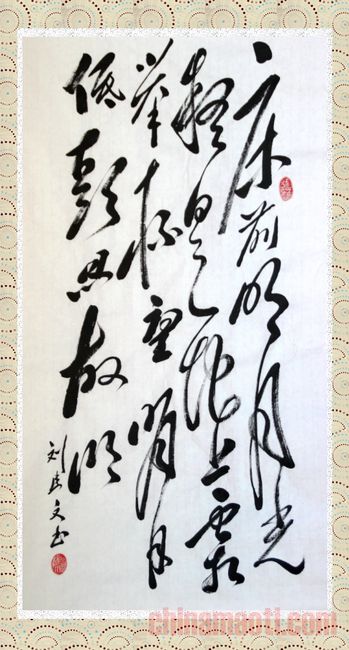 床前明月光
疑是地上霜
举杯望明月
低頭思故鄉
刘彦文书
chinamaoti.com